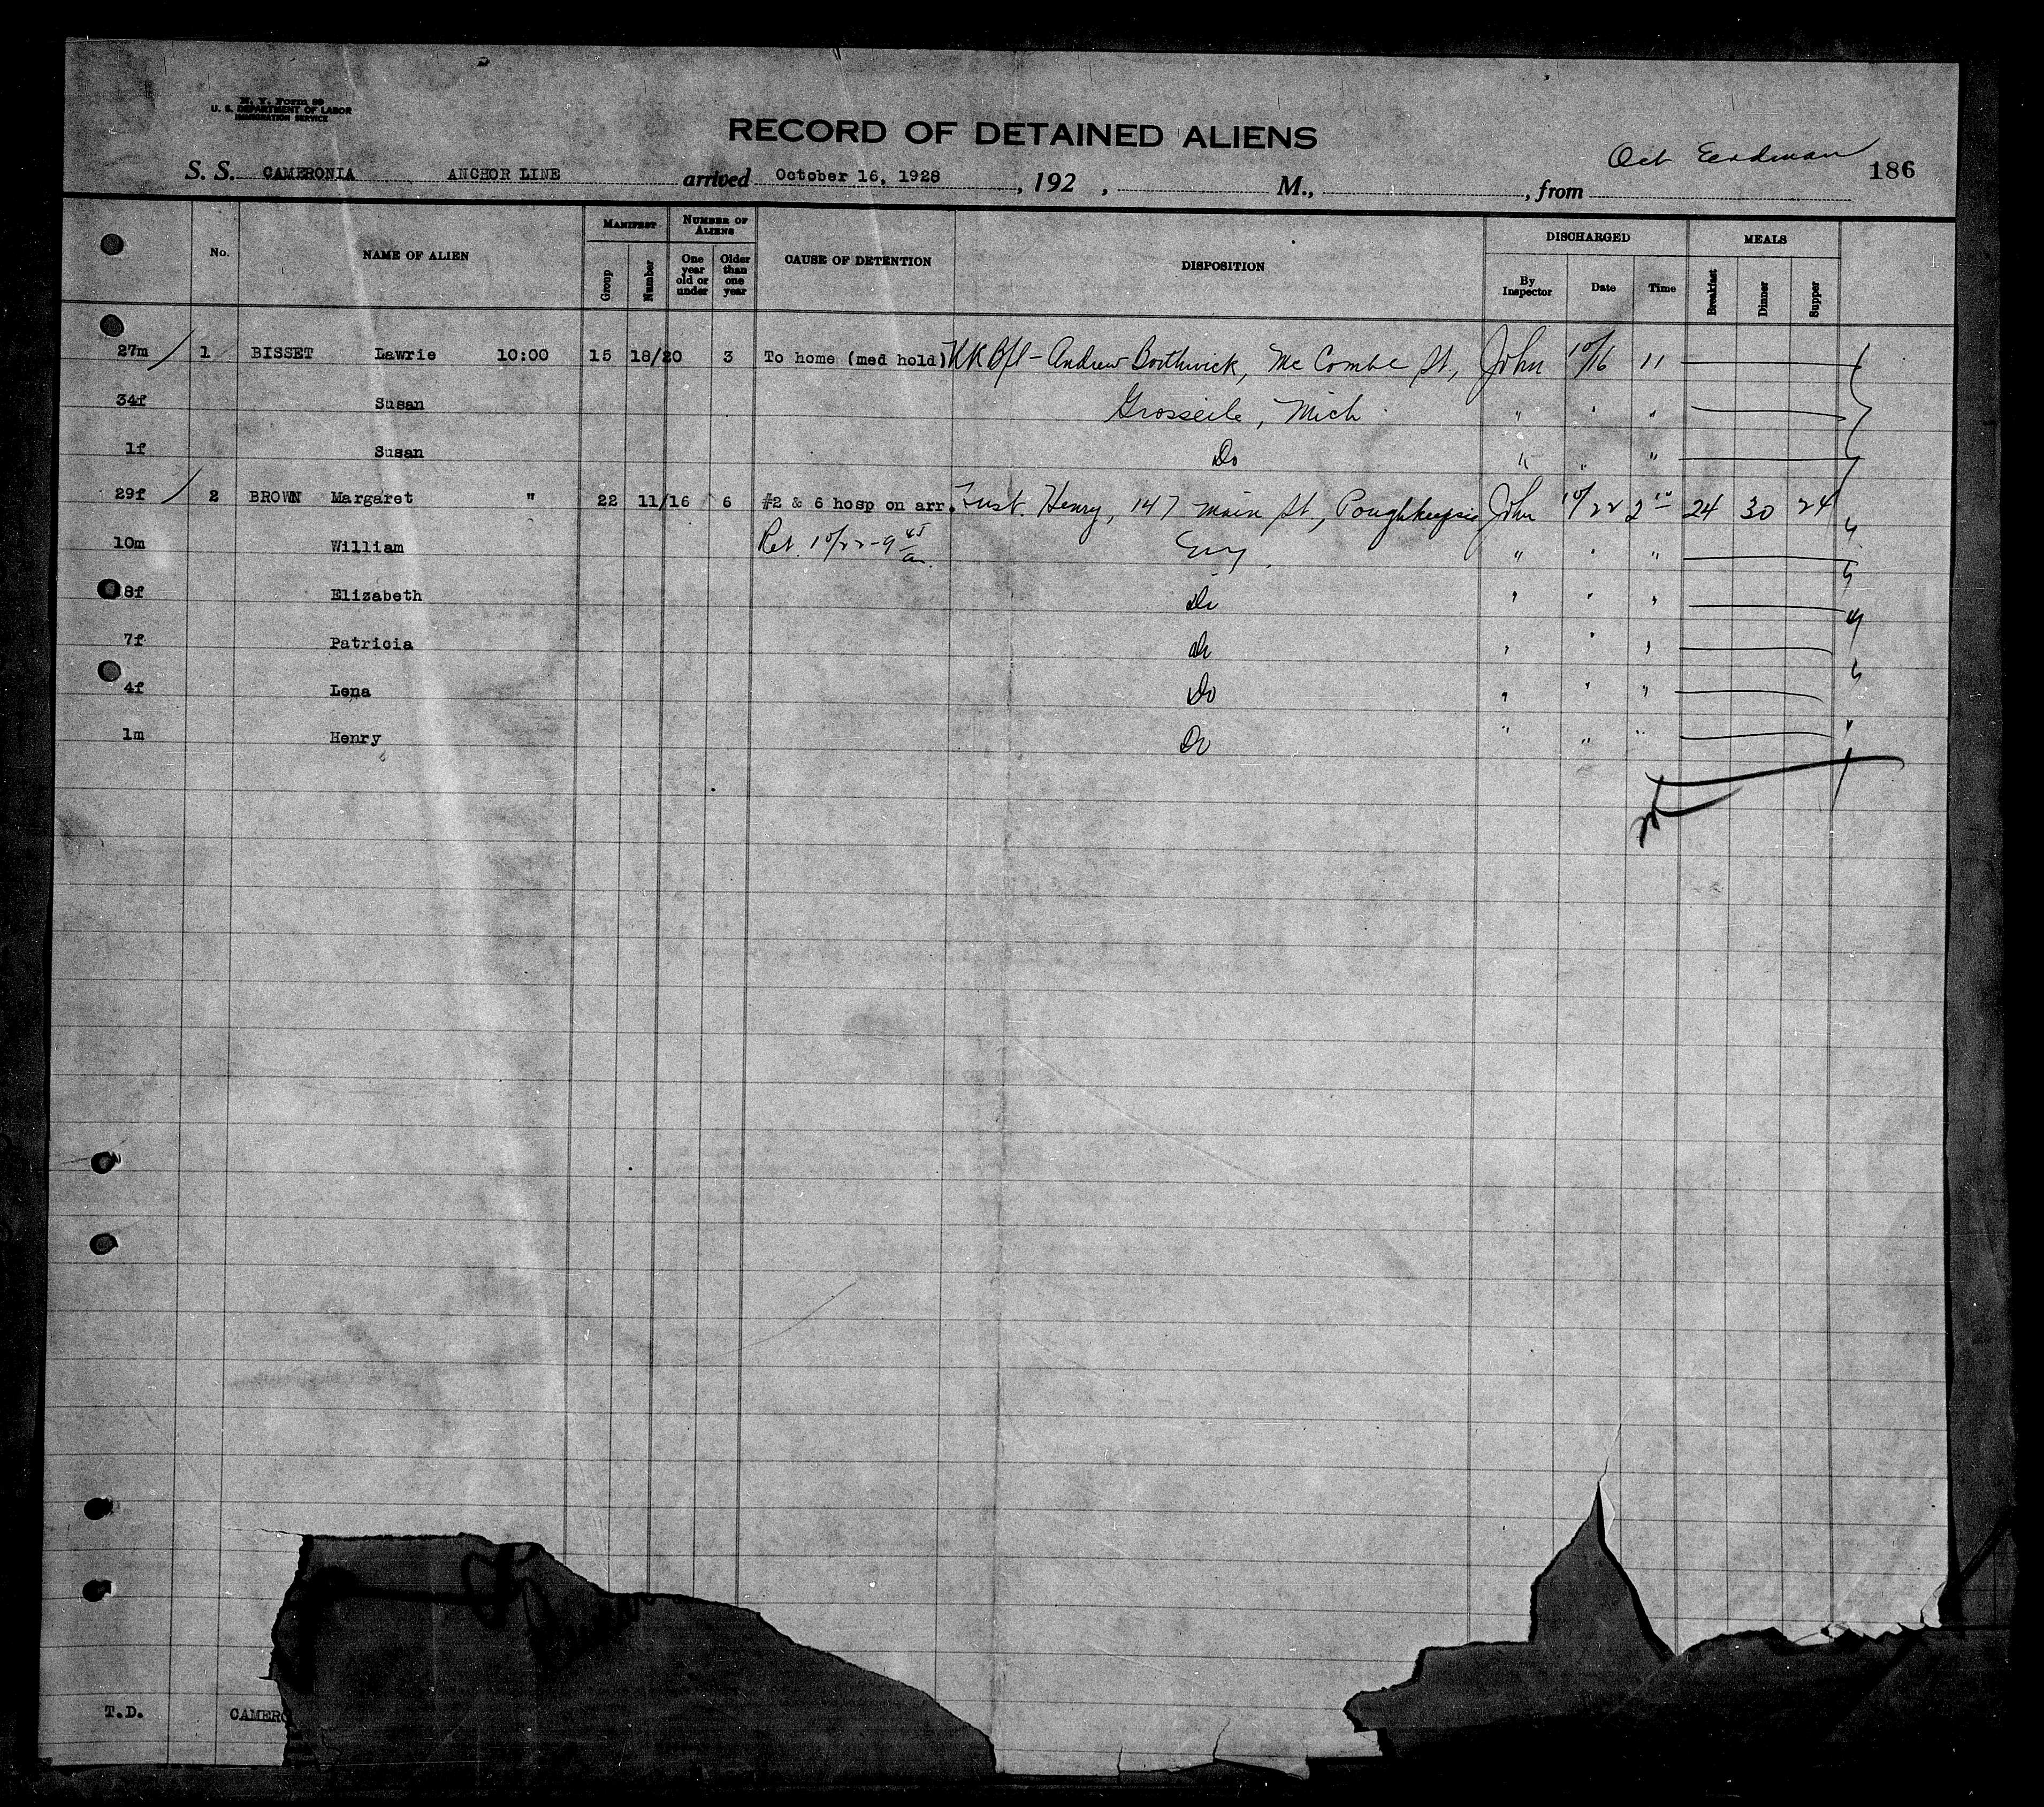 N. Y. Form 89
U. S. DEPARTMENT OF LABOR
IMMIGRATION SERVICE
RECORD OF DETAINED ALIENS
186
S. S. CAMERONIA ANCHOR LINE arrived October 16, 1928, 192 , M., , from
No. NAME OF ALIEN MANIFEST Group Number NUMBER OF ALIENS One year old or under Older than one year CAUSE OF DETENTION DISPOSITION DISCHARGED By Inspector Date Time MEALS Breakfast Dinner Supper
27m 1 BISSET Lawrie 10:00 15 18/20 3 To home (med hold) Andrew Borthwick, Mc Combe St., John 10/16 11
34f Susan Grosseile, Mich. " " "
1f Susan Do " " "
29f 2 BROWN Margaret " 22 11/16 6 #2 & 6 hosp on arr. Henry, 147 Main St., Poughkeepsie John 10/22 2 10 24 30 24
10m William Ret. 10/22-9 45 am. " " "
8f Elizabeth Do " " "
7f Patricia Do " " "
4f Lena Do " " "
1m Henry Do " " "
T.D. CAMERO